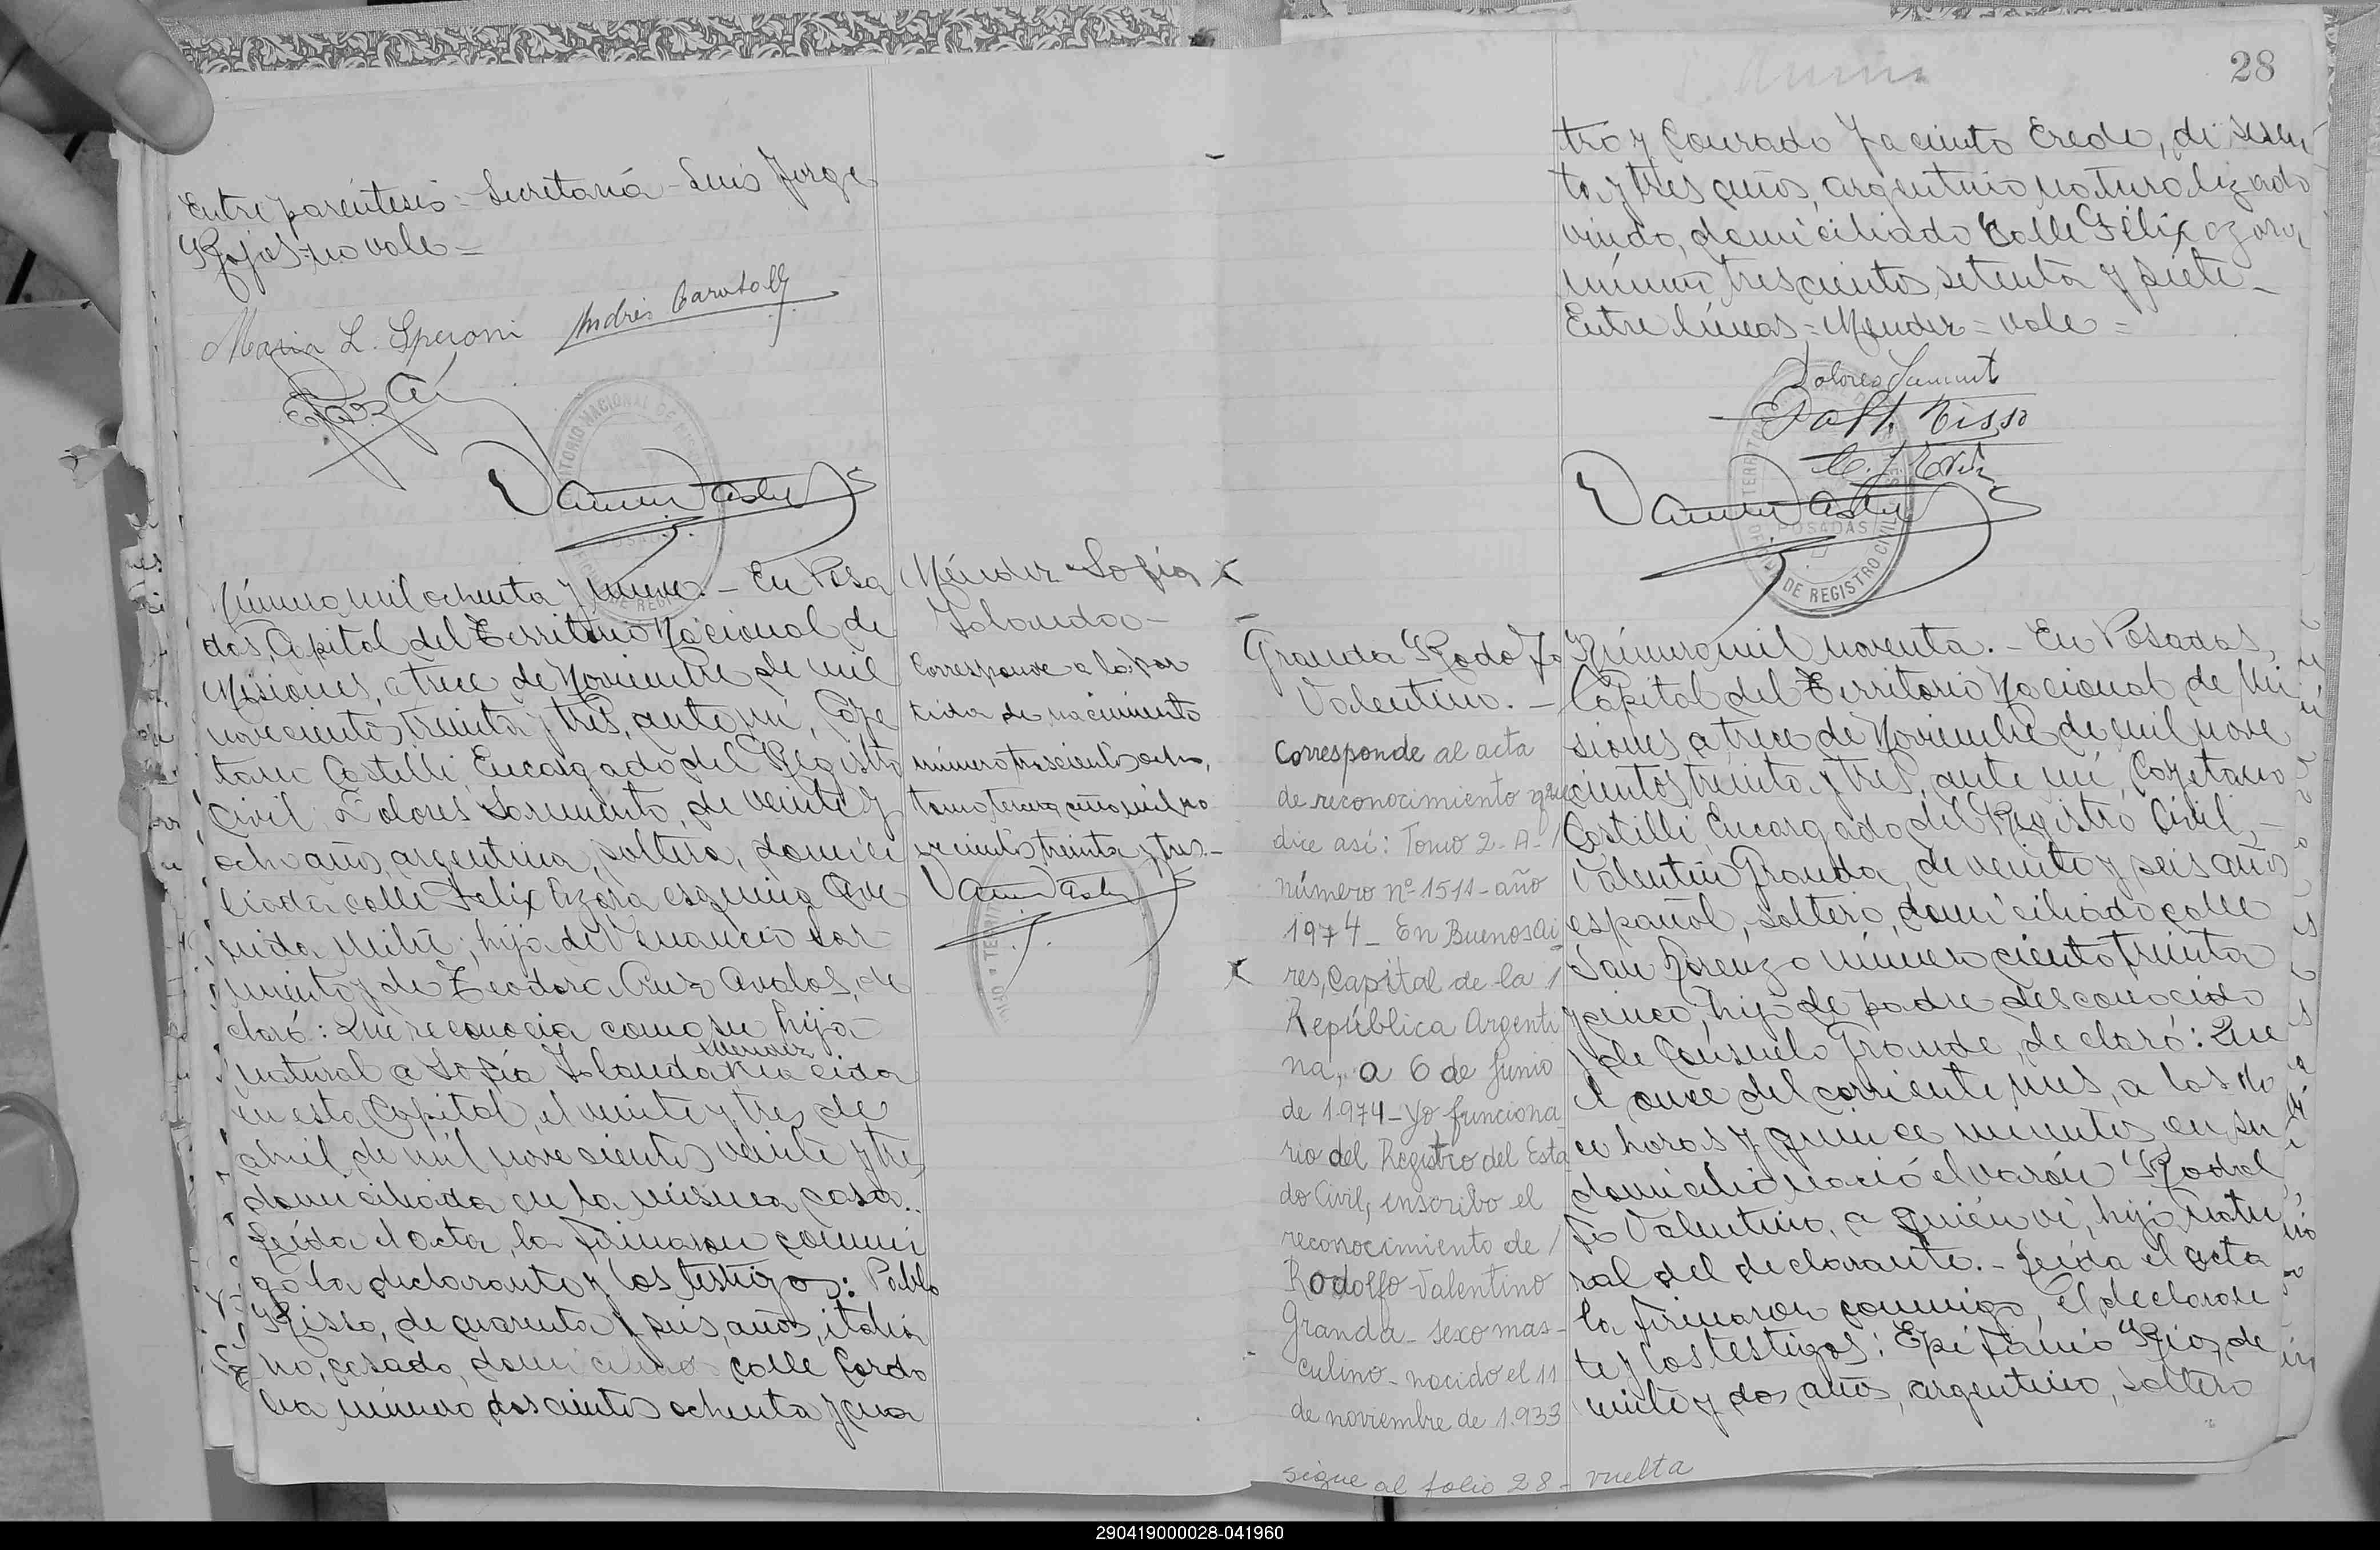 Entre paréntesis = Secretaria - Luis Jorge
Rojas = no vale =
Maria L. Speroni
Andrés
TERRITORIO NACIONAL DE MISIONES
Número mil ochenta y nueve. - En Posa
das, Capital del Territorio Nacional de
Misiones, a trece de Noviembre de mil
novecientos treinta y tres, ante mí, Caye
tano Castelli, Encargado del Registro
Civil, Dolores Sarmiento, de veinte y
ocho años, argentina, soltera, domici
liada calle Felix Azara esquina Ave
nida Mitre, hija de Venancio Sar
miento y de Teodora Cruz Avalos, de
claró: Que reconocia como su hija
Mendez
natural a Sofía Yolanda nacida
en esta Capital, el veinte y tres de
abril de mil novecientos veinte y tres
domiciliada en la misma casa..
Leída el acta, la firmaron conmi
go la declarante y los testigos: Pablo
Risso, de cuarenta y seis años, italia
no, casado, domiciliado calle Cordo
ba número doscientos ochenta y cua
Méndez Sofía
Yolanda -
Corresponde a la par
tida de nacimiento
número trescientos ocho,
tomo tercero, año mil no
vecientos treinta y tres. -
28
tro y Conrado Jacinto Erede, de sesen
ta y tres años, argentino naturalizado
viudo, domiciliado calle Félix Azara
número trescientos setenta y siete -
Entre líneas = Mendez = vale =
Dolores Sarmient
Pablo Risso
POSADAS
OFICINA DE REGISTRO CIVIL
Granda Rodolfo
Valentino. -
Corresponde al acta
de reconocimiento que
dice así: Tomo 2 - A - /
número nº 1511 - año
1974 - En Buenos Ai
res, Capital de la /
República Argenti
na, a 6 de Junio
de 1.974 - Yo funciona
rio del Registro del Esta
do Civil, inscribo el
reconocimiento de /
Rodolfo Valentino
Granda - sexo mas-
culino - nacido el 11
de noviembre de 1.933
sigue al folio 28 - vuelta
Número mil noventa. - En Posadas,
Capital del Territorio Nacional de Mi
siones, a trece de Noviembre de mil nove
cientos treinta y tres, ante mí, Cayetano
Castelli, Encargado del Registro Civil, -
Valentín Granda, de veinte y seis años
español, soltero, domiciliado calle
San Lorenzo número ciento treinta
y cinco, hijo de padre desconocido
y de Consuelo Grande, declaró: Que
el once del corriente mes, a las do
ce horas y quince minutos, en su
domicilio nació el varón Rodol
fo Valentino, a quién ví, hijo natu
ral del declarante. - Leída el acta
la firmaron conmigo, el declaran
te y los testigos: Epifanio Rios, de
veinte y dos años, argentino, soltero
290419000028-041960